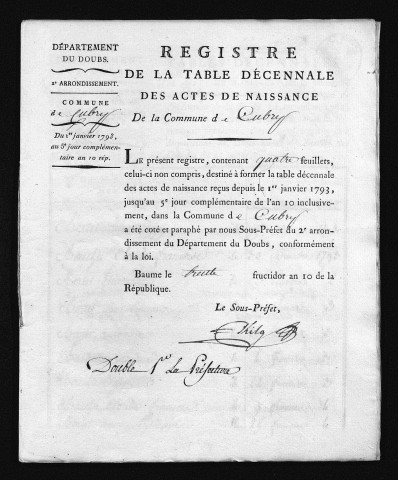 DÉPARTEMENT
DU DOUBS.
2e ARRONDISSEMENT.
COMMUNE
de Cubry
Du 1er janvier 1793,
au 5e jour complémen-
taire an 10 rép.
REGISTRE
DE LA TABLE DÉCENNALE
DES ACTES DE NAISSANCE
De la Commune de Cubry
LE présent registre, contenant quatre feuillets,
celui-ci non compris, destiné à former la table décennale
des actes de naissance reçus depuis le 1er janvier 1793,
jusqu'au 5e jour complémentaire de l'an 10 inclusive-
ment, dans la Commune de Cubry
a été coté et paraphé par nous Sous-Préfet du 2e arron-
dissement du Département du Doubs, conformément
à la loi.
Baume le trente fructidor an 10 de la
République.
Le Sous-Préfet,
Double Pr La Préfecture